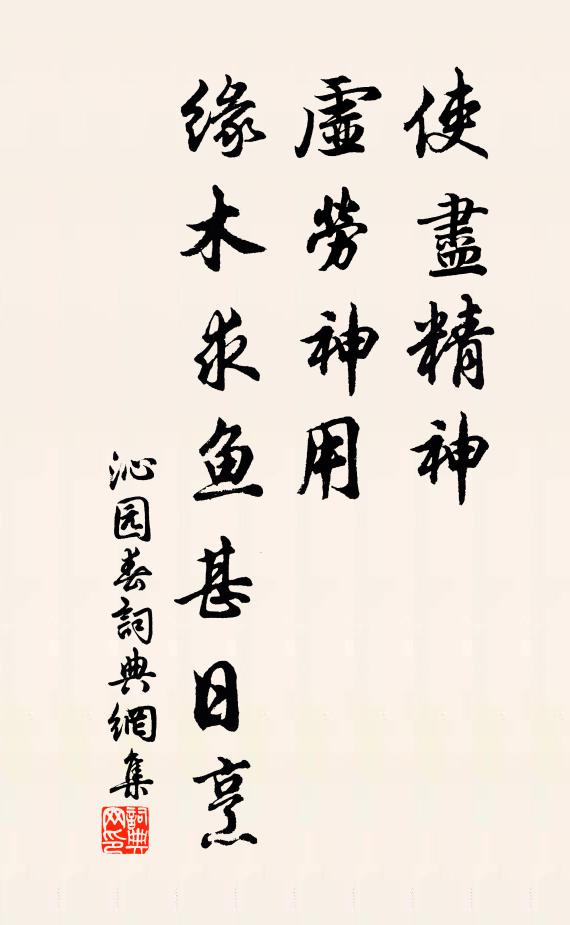 使盡精神
虛勞神用
缘木求鱼甚日烹
沁园春詞典網集
詞典网印